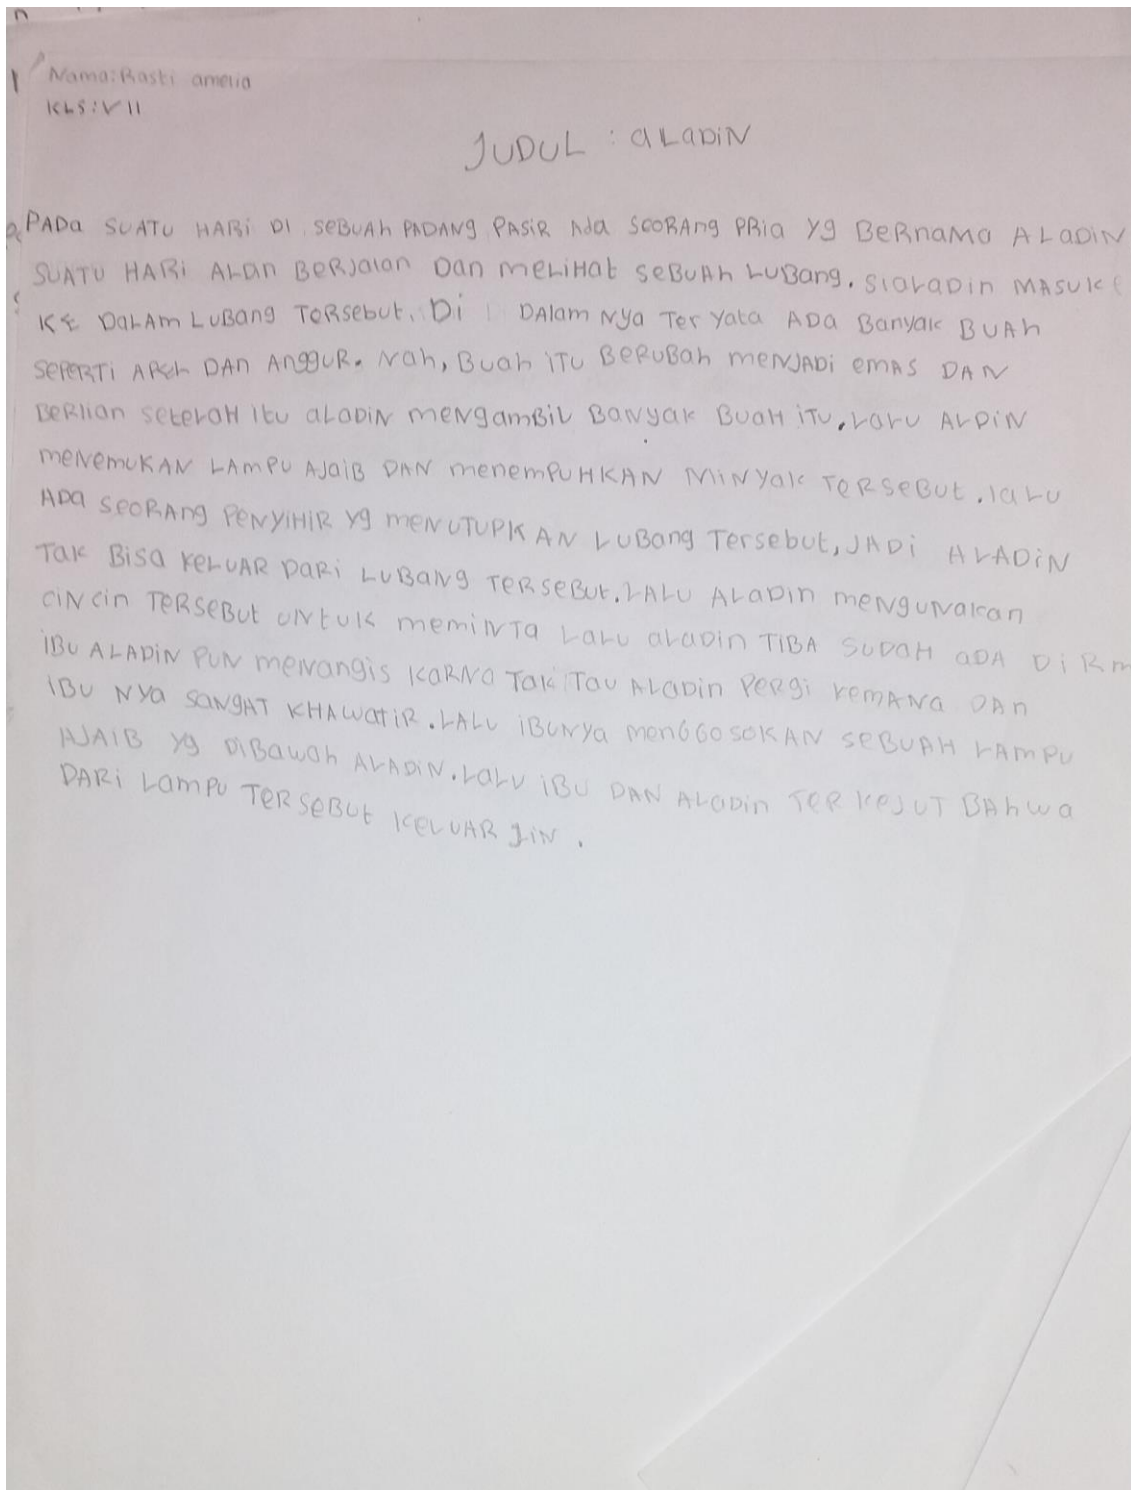 Nama: Rasti amelia
KLS: VII
JUDUL : aLaDiN
PADa SUATU HARi Di SeBUAh PADANg PASiR Ada SeORAng PRia yg BeRnaMa ALaDiN
SUATU HARi ALan BeRJalan Dan meLiHat SeBUAh LUBang. SiaLaDin MASUK
KE DaLAm LuBang TeRsebut. Di DALam Nya Ter yata ADa Banyak BUAh
SEPERTi APeL DAN AngguR. Nah, Buah iTU BeRUBah menJADi emAS DAN
BeRlian seteLaH itu aLaDiN mengamBiL BaNyak BuaH iTU. LaLu ALDiN
meNemuKAN LAmPU AJaiB DAN menemPUHKAN MiNyak TeRSeBUT. laLu
ADa SeORANg PENyiHiR yg meNUTUPKAN LUBang Tersebut, JADi ALADiN
TaK BiSa KeLUAR DaRi LUBaNg TeRSeBut. LALU ALaDin meNguNakan
ciNcin TERSeBut uNtuk memiNTa LaLu aLaDin TiBA SUDaH aDA Di Rm
iBU ALADiN PUN meNangis KaRNa TaK Tau ALaDin PeRgi KeMANa DAn
iBU NYa SaNgAT KHAWatiR. LALU iBUNya menGGOSOKAN SeBUAH LAmPU
AJAiB yg DiBawah ALADiN. LaLU iBU DAN ALaDin TeRKeJUT BAhwa
DARi LamPU TeRSeBUt KeLUAR JiN.